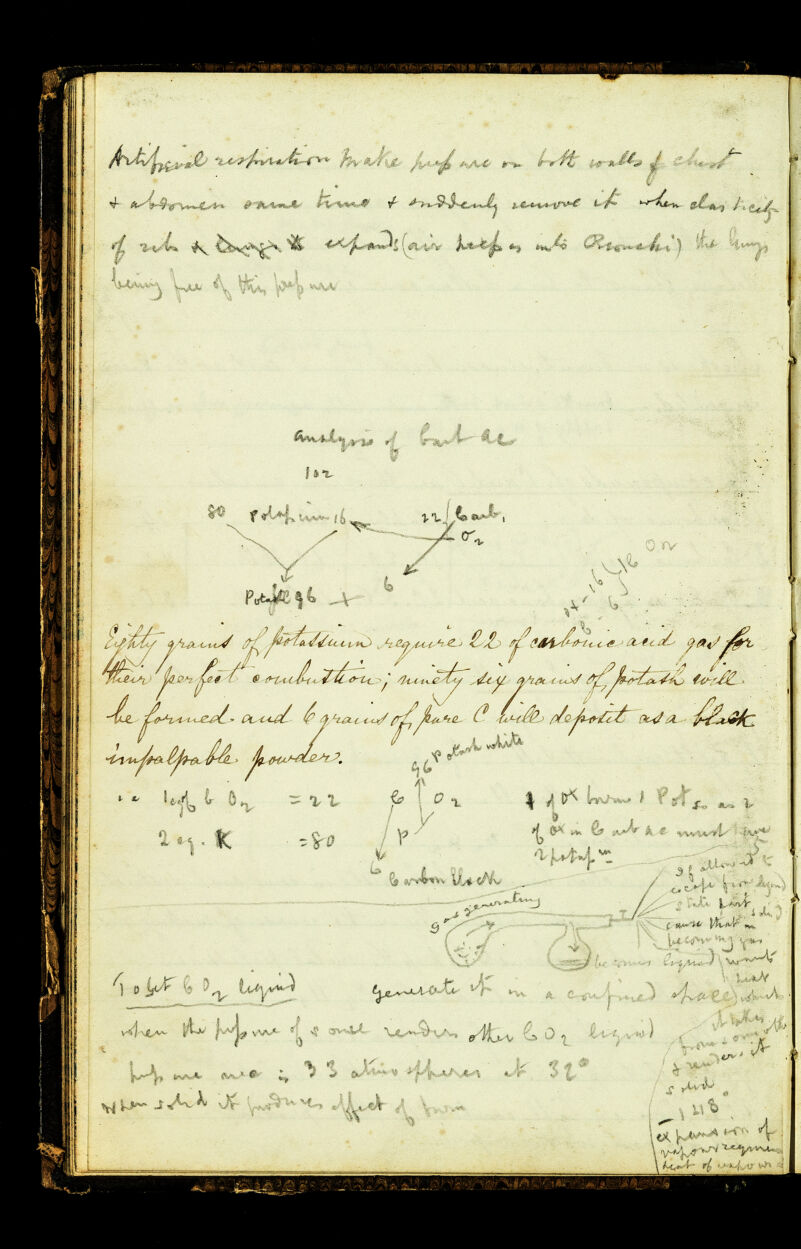 Artificial respiration make pressure on both walls of chest
& abdomen same time & suddenly remove it when elasticity
of ribs expands (air presses into Bronchi) the lungs
being free of this pressure
Analysis of Carb Ac
102
80 Potassium 16 22 Carb.
O2
Potasse 96 + 6
16 On
Eighty grains of potassium require 22 of carbonic acid gas for
their perfect combustion; ninety six grains of potash will
be formed and 6 grains of pure C will deposit as a black
impalpable powder.
96 Potash white
1 eq of C O2 = 22 C O2
1 of Ox burns 1 Pot so as 2
2 eq. K = 80 P
of Ox in Carb Ac must have
2 potassm
6
Carbon black
gas generating
becomes liquid
If allowed to
escape from liquid
state part
cause that in
becoming gas
wants
heat
which
it takes
from some other
& renders it
solid
-148°
expansion of
vapour requires
heat of vapour
To get CO2 liquid generate it in a confined space
when the pressure of some renders other CO2 liquid
pressure nec is 33 atmospheres at 32°
When solid it produces effect of burn